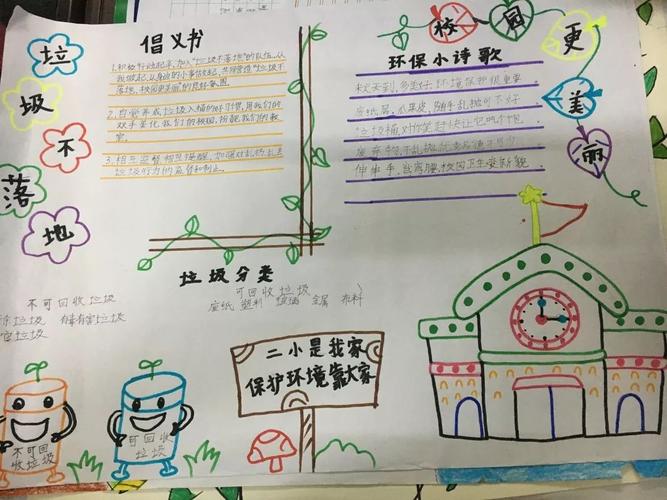 垃圾不落地
校园更美丽
倡议书
1.积极行动起来,加入"垃圾不落地"的队伍。从
我做起,从身边的小事做起,共同营造"垃圾不
落地,校园更美丽"的良好氛围
2.自觉养成垃圾入桶的好习惯,用我们的
双手美化我们的校园,扮靓我们的教
室。
3.相互监督相互提醒,加强对乱扔乱丢
垃圾行为的监督和制止。
环保小诗歌
秋天到,多美好,环境保护很重要。
废纸屑,瓜果皮,随手乱抛可不好
垃圾桶对你笑赶快让它吃个饱
废弃物,不乱抛
伸伸手,我弯腰校园卫生变新貌
垃圾分类
不可回收垃圾
垃圾 有毒有害垃圾
垃圾
可回收垃圾
废纸 塑料 玻璃 金属 布料
二小是我家
保护环境靠大家
不可回
收垃圾
可回收
垃圾